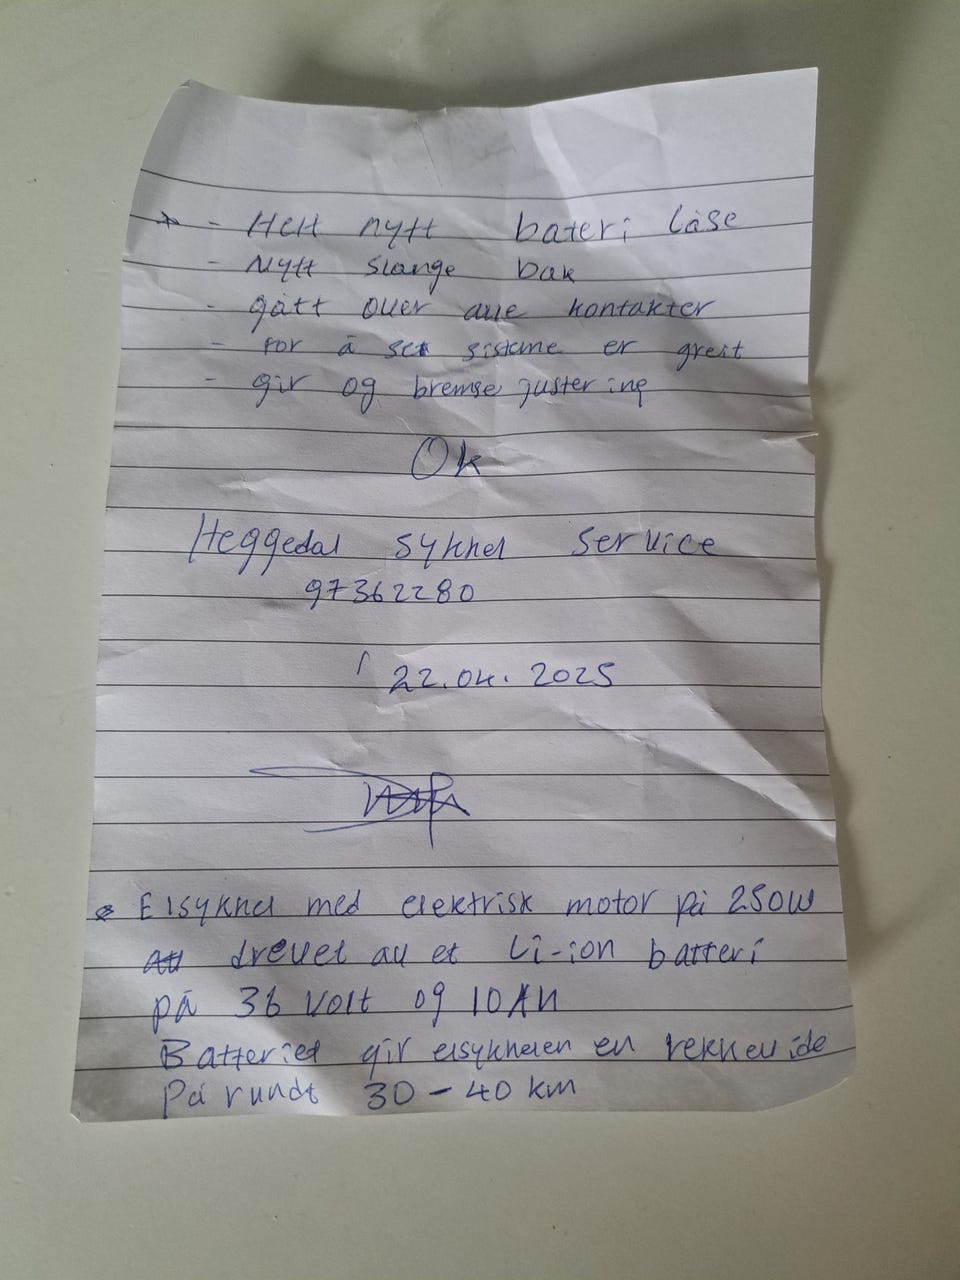 - Helt nytt bateri låse
- Nytt slange bak
- gått over alle kontakter
- for å set sisteme er greit
- gir og bremse justering
Ok
Heggedal sykkel service
97362280
22.04.2025
Elsykkel med elektrisk motor på 250W
drevet av et Li-ion batteri
på 36 volt og 10AH
Batteriet gir elsykkelen en rekkevide
På rundt 30-40 km